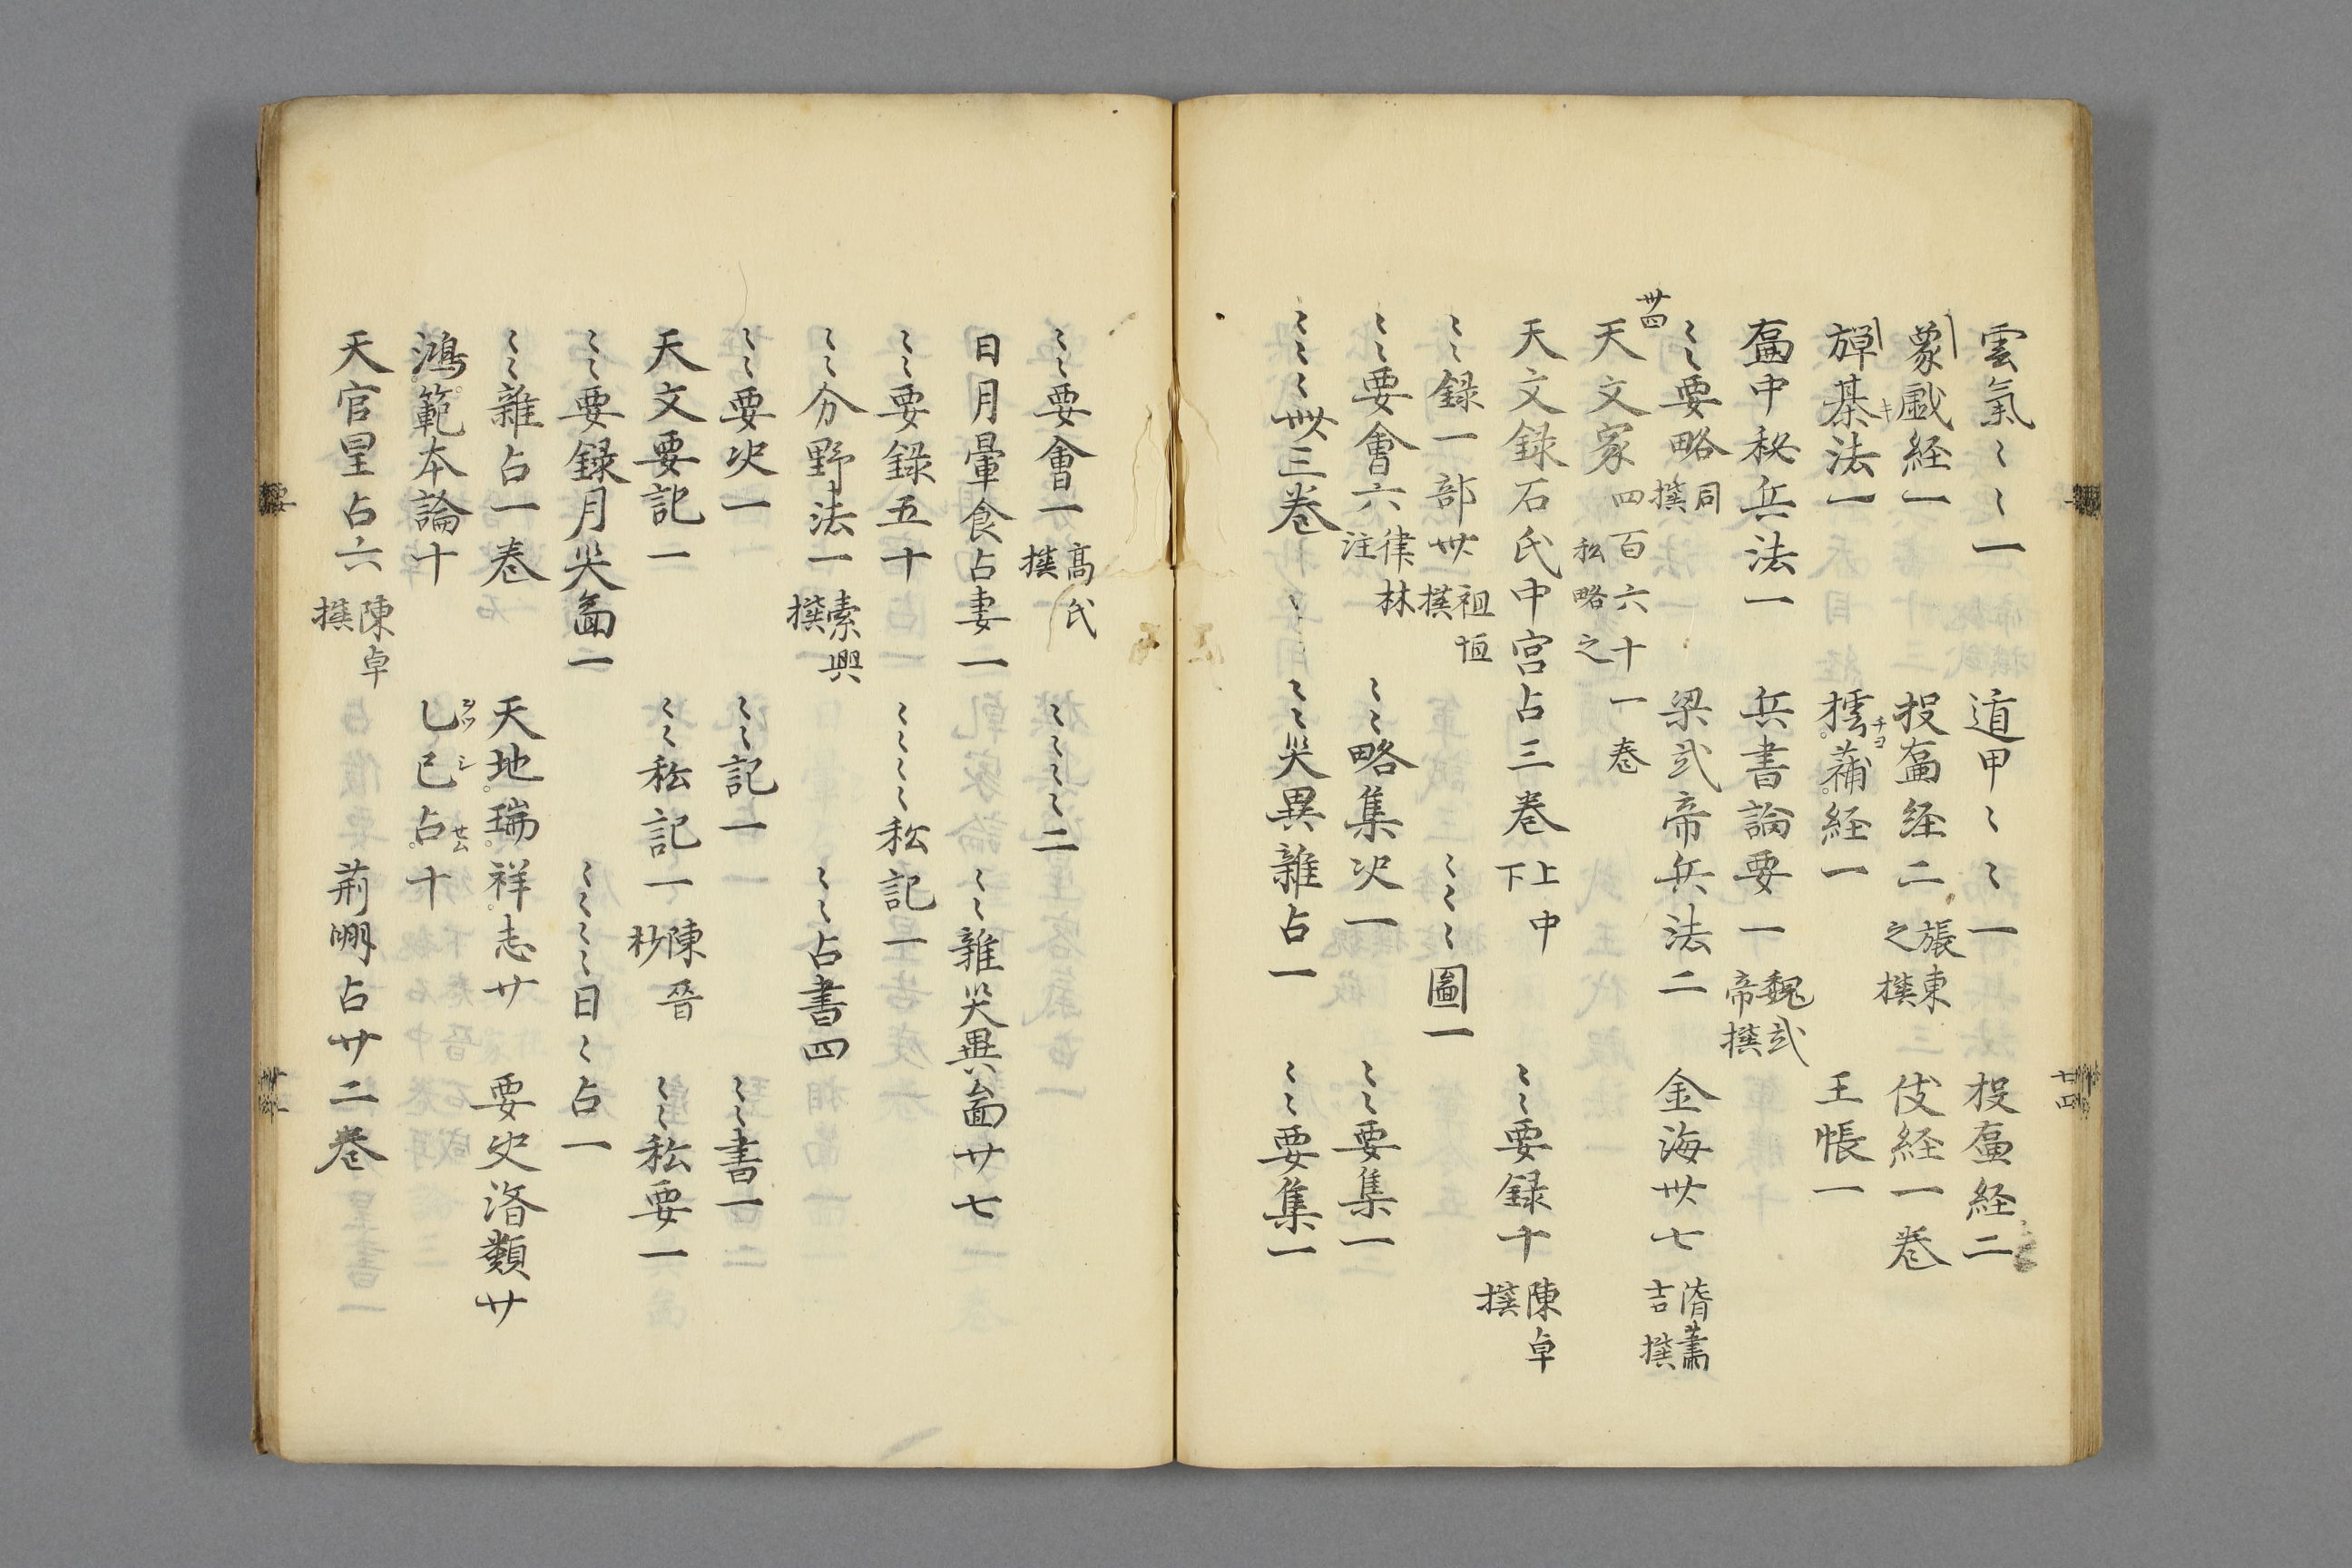 雲氣〻〻一 遁甲〻〻一 投壷経二
象戯経一 投壷経二 張東之撰 伎経一巻
彈棊法一 キ 樗蒲経一 チヨ 王帳一
壷中秘兵法一 兵書論要一 魏武帝撰
〻〻要略 同撰 梁武帝兵法二 金海卅七 隋蕭吉撰
卅四
天文家 四百六十一巻 私略之
天文録石氏中宮占三巻 上中下 〻〻要録十 陳卓撰
〻〻録一部卅 祖恒撰 〻〻〻〻圖一
〻〻要會六 律林注 〻〻略集次一 〻〻要集一
〻〻〻〻卅三巻 〻〻災異雜占一 〻〻要集一
廿四
〻〻要會一 髙氏撰 〻〻〻〻二
日月暈食占妻一 〻〻雜災異啚廿七
〻〻要録五十 〻〻〻〻私記一
〻〻分野法一 索興撰 〻〻占書四
〻〻要次一 〻〻記一 〻〻書一
天文要記一 〻〻私記一 陳晉抄 〻〻私要一
〻〻要録月災啚一 〻〻〻〻日〻占一
〻〻雜占一巻 天地瑞祥志廿 要史 類廿
鴻範本論十 乙巳占十 ヲツ シ せム
天官星占六 陳卓撰 荊 占廿二巻